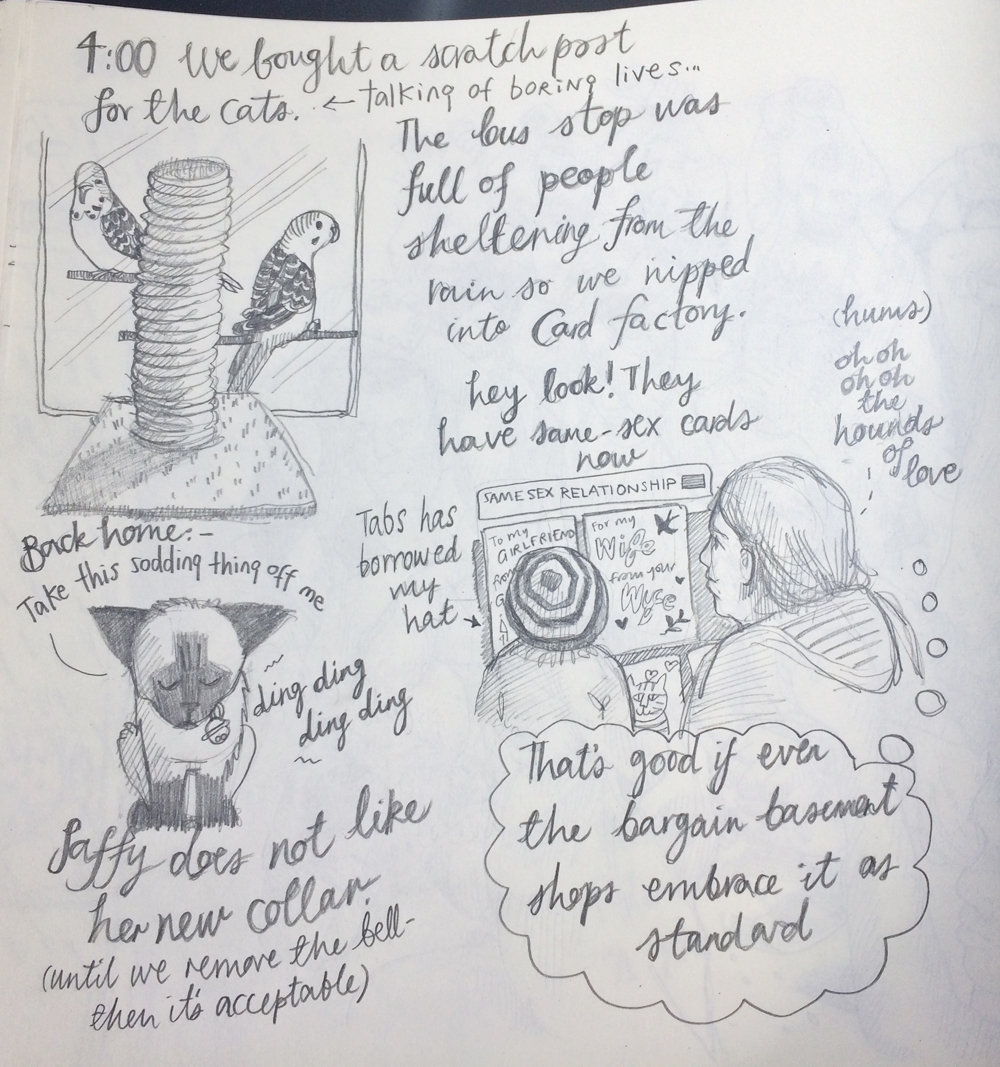 4:00 We bought a scratch post
for the cats. ← talking of boring lives...
The bus stop was
full of people
sheltering from the
rain so we nipped
into Card factory.
hey look! They
have same-sex cards
now
(hums)
oh oh
oh oh
the
hounds
of
love
SAME SEX RELATIONSHIP
To my
GIRLFRIEND
For my
Wife
from your
Wife
Tabs has
borrowed
my
hat
That's good if even
the bargain basement
shops embrace it as
standard
Back home:-
Take this sodding thing off me
ding ding
ding ding
Saffy does not like
her new collar.
(until we remove the bell-
then it's acceptable)